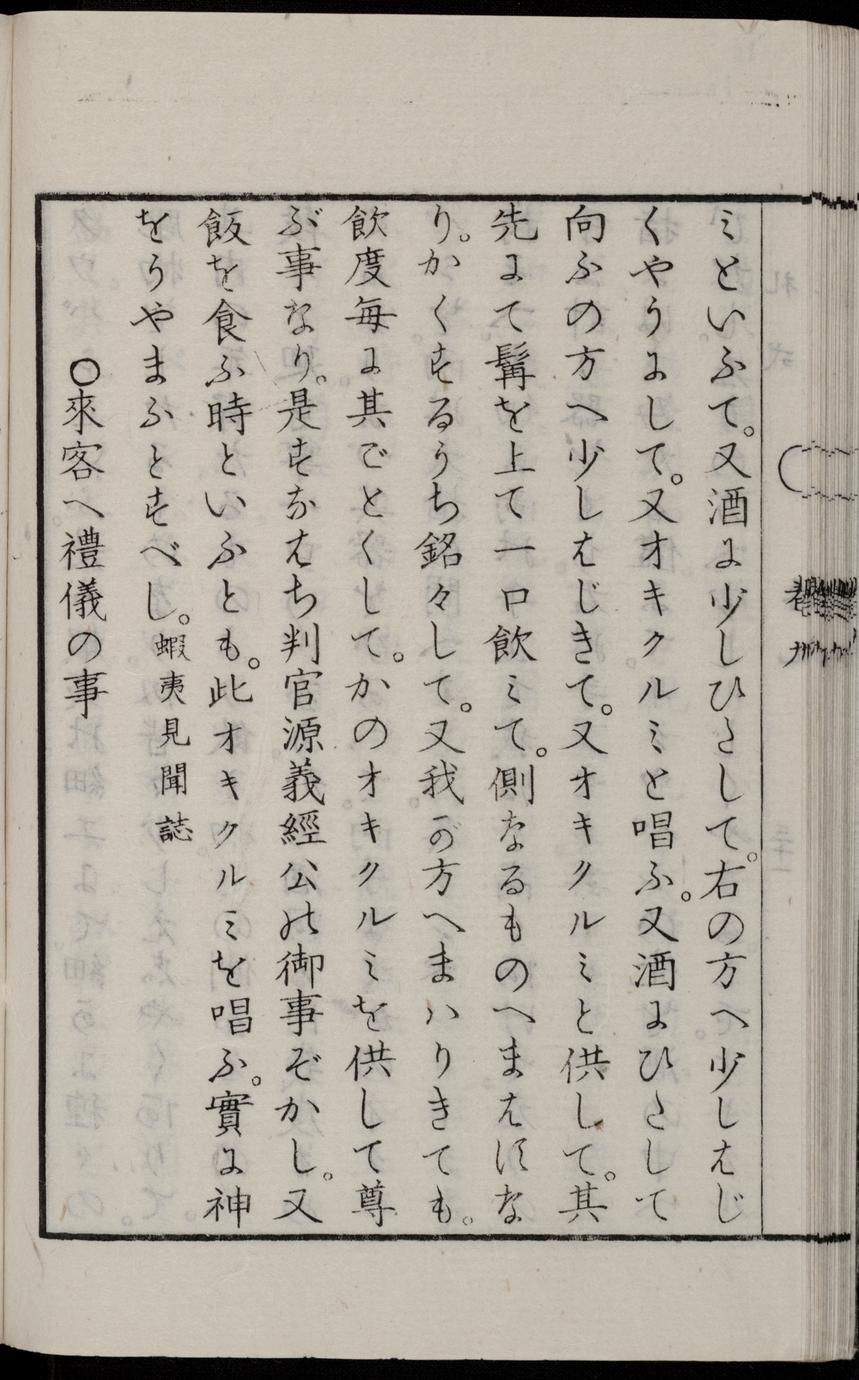 ミといふて。又酒に少しひたして。右の方へ少しはじ
くやうにして。又オキクルミと唱ふ。又酒にひたして
向ふの方へ少しはじきて。又オキクルミと供して。其
先にて髯を上て一口飲ミて。側なるものへまはすな
り。かくするうち銘々して。又我が方へまハりきても。
飲度毎に其ごとくして。かのオキクルミを供して尊
ぶ事なり。是すなはち判官源義經公の御事ぞかし。又
飯を食ふ時といふとも。此オキクルミを唱ふ。實に神
をうやまふとすべし。蝦夷見聞誌
○來客へ禮儀の事